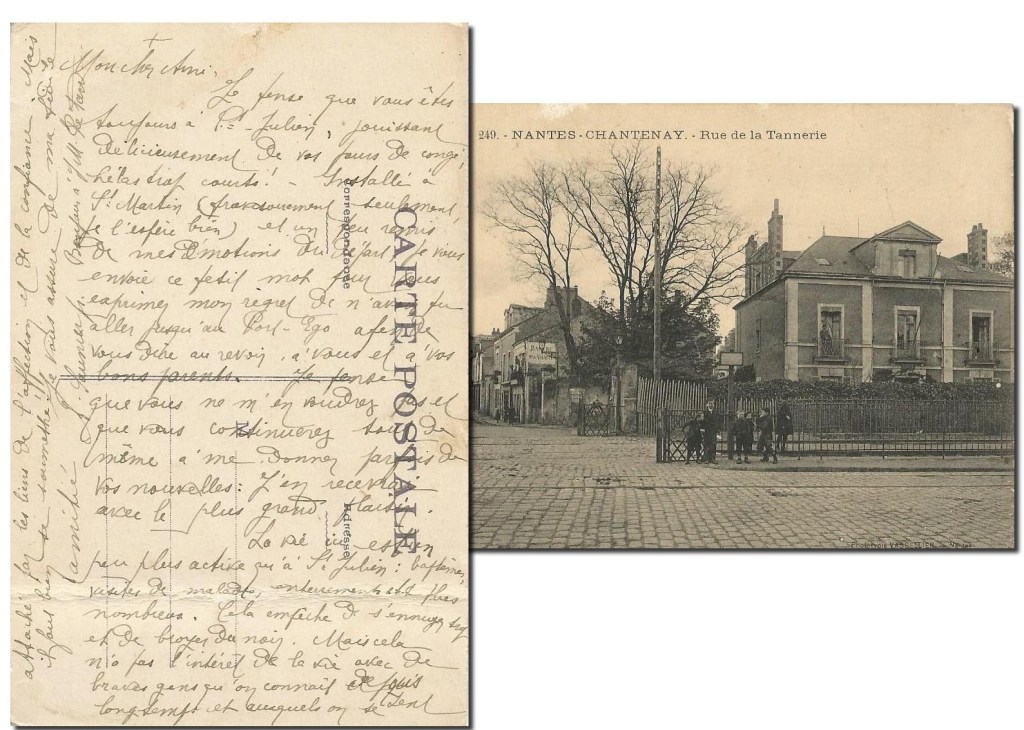 +
Mon cher Ami,
Je pense que vous êtes
toujours à St-Julien, jouissant
délicieusement de vos jours de congé,
hélas trop courts! - Installé à
St Martin (provisoirement seulement
je l'espère bien) et un peu remis
de mes émotions du départ je vous
envoie ce petit mot pour vous
exprimer mon regret de n'avoir pu
aller jusqu'au Port-Ego afin de
vous dire au revoir, à vous et à vos
bons parents. Je pense
que vous ne m'en voudrez pas et
que vous continuerez tout de
même à me donner parfois de
vos nouvelles: J'en recevrai
avec le plus grand plaisir.
La vie ici est un
peu plus active qu'à St Julien: baptêmes,
visites de malades, enterrements est plus
nombreux. Cela empêche de s'ennuyer
et de broyer du noir. Mais cela
n'a pas l'intérêt de la vie avec de
braves gens qu'on connaît depuis
longtemps et auxquels on se sent
attaché par les liens de l'affection et de la confiance. Mais
il faut bien se soumettre!! Je vous assure de ma
l'amitié
Bonjour à
CARTE POSTALE
Correspondance
Adresse
M
249. - NANTES-CHANTENAY. - Rue de la Tannerie